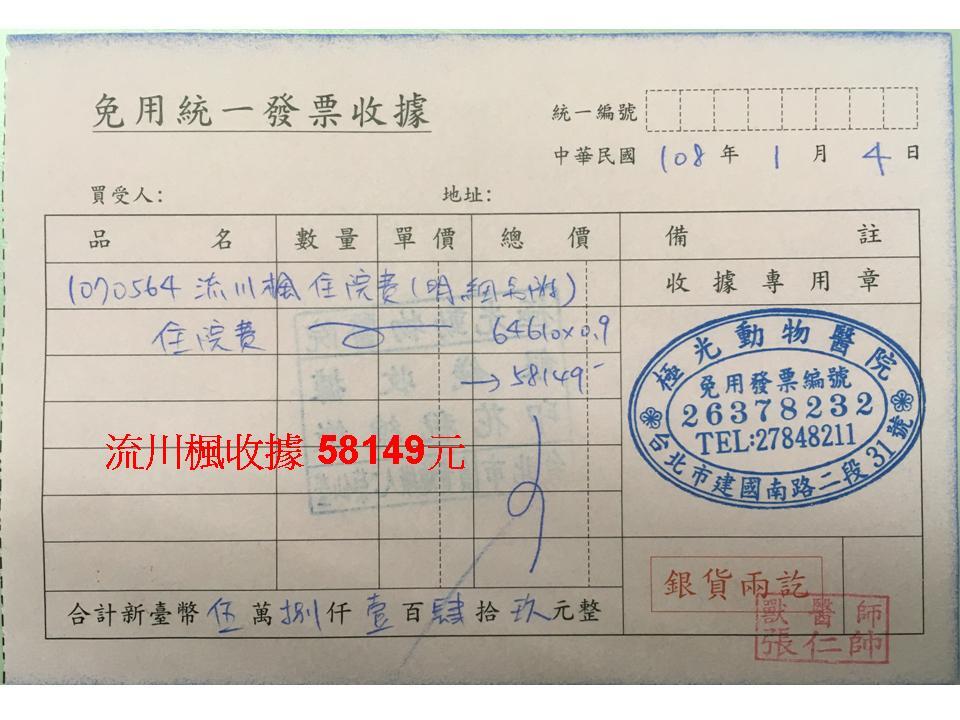 免用統一發票收據
統一編號
中華民國 108 年 1 月 4 日
買受人： 地址：
品名 數量 單價 總價 備註
1070564 流川楓 住院費(明細) 收據專用章
住院費 64610x0.9
→58149-
極光動物醫院
免用發票編號
26378232
TEL:27848211
台北市建國南路二段31號
流川楓收據 58149元
銀貨兩訖
合計新臺幣 伍 萬 捌 仟 壹 百 肆 拾 玖 元整
獸醫師
張仁帥